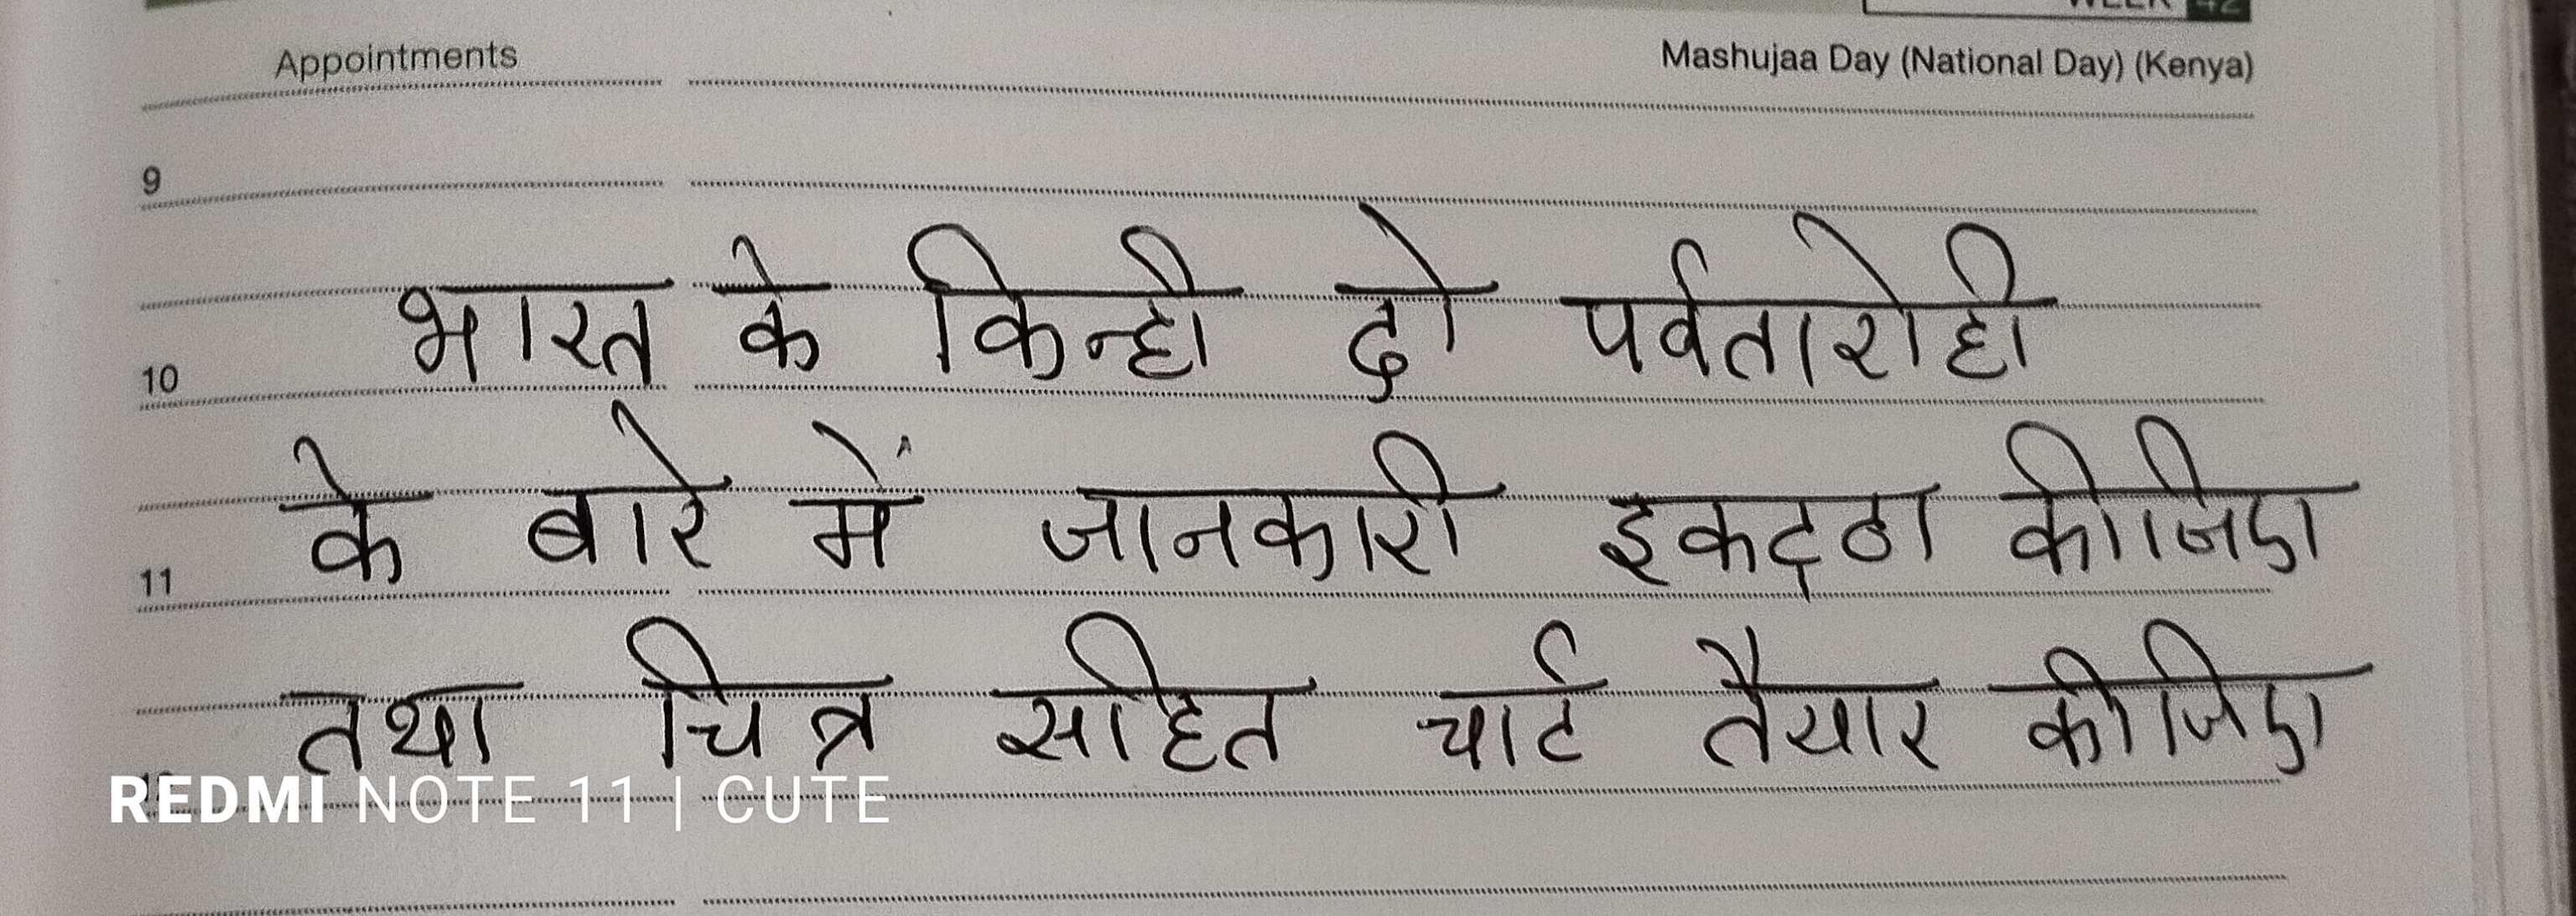 Appointments Mashujaa Day (National Day) (Kenya)
9
भारत के किन्ही दो पर्वतारोही
10
के बारे में जानकारी इकट्ठा कीजिए
11
तथा चित्र सहित चार्ट तैयार कीजिए
REDMI NOTE 11 | CUTE